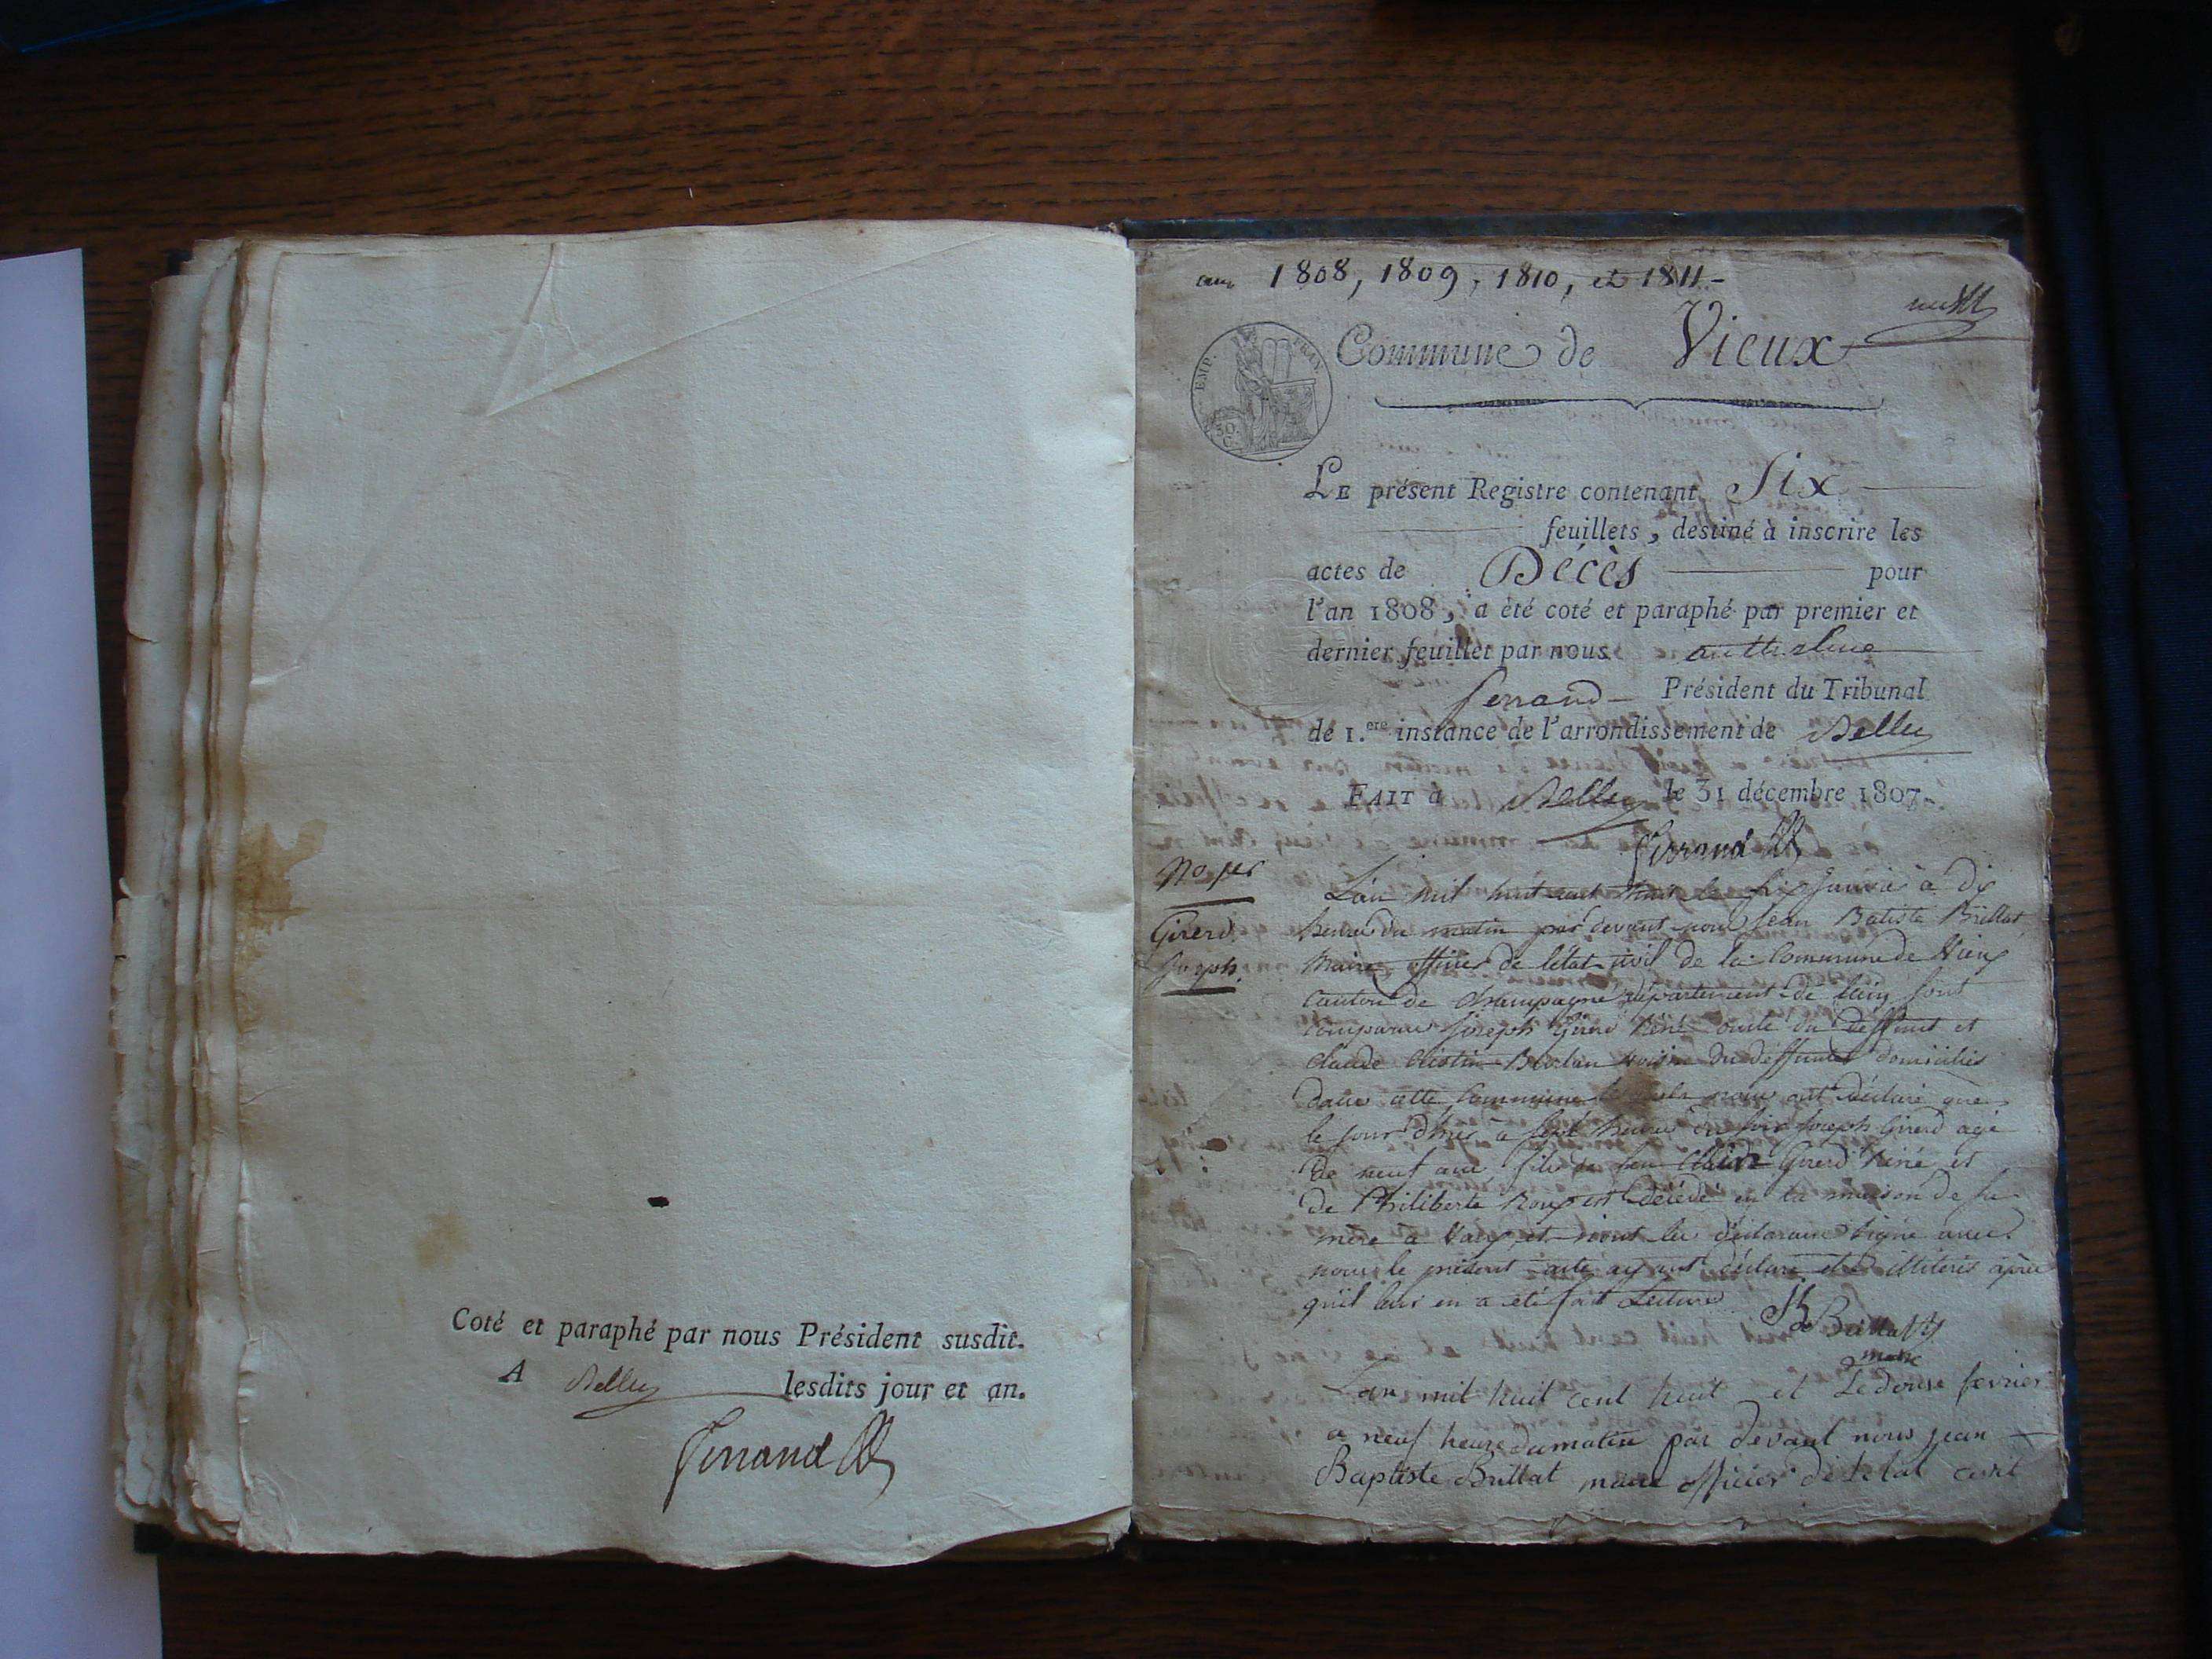 Coté et paraphé par nous Président susdit.
A Belley lesdits jour et an.
Ferrand
1808, 1809, 1810, et 1811.-
Commune de Vieux
EMP. FRAN.
50.
C.
LE présent Registre contenant Six
feuillets, destiné à inscrire les
actes de Décès pour
l'an 1808, a été coté et paraphé par premier et
dernier feuillet par nous anthelme
ferrand Président du Tribunal
de 1.ere instance de l'arrondissement de Belley
FAIT à Belley le 31 décembre 1807.
Ferrand
No per
Girerd
Joseph.
L'an mil huit cent huit le six Janvier à dix
heures du matin par devant nous Jean Batiste Brillat,
Maire officier de l'état civil de la Commune de Vieux
canton de champagne département de l'ain sont
comparus Joseph Girerd oncle du deffunt et
claude voisin du deffunt domiciliés
dans cette Commune nous ont déclaré que
le jour d'hier à sept heures du soir Joseph Girerd agé
de neuf ans fils de feu Girerd et
de Philiberte est décédé en la maison de sa
mère a et n'ont les déclarans signé avec
nous le présent acte ayant déclaré etre illiterés après
qu'il leur en a été fait Lecture
Brillat
maire
L'an mil huit cent huit et Le douse fevrier
a neuf heure du matin par devant nous jean
Baptiste Brillat maire officier de letat civil